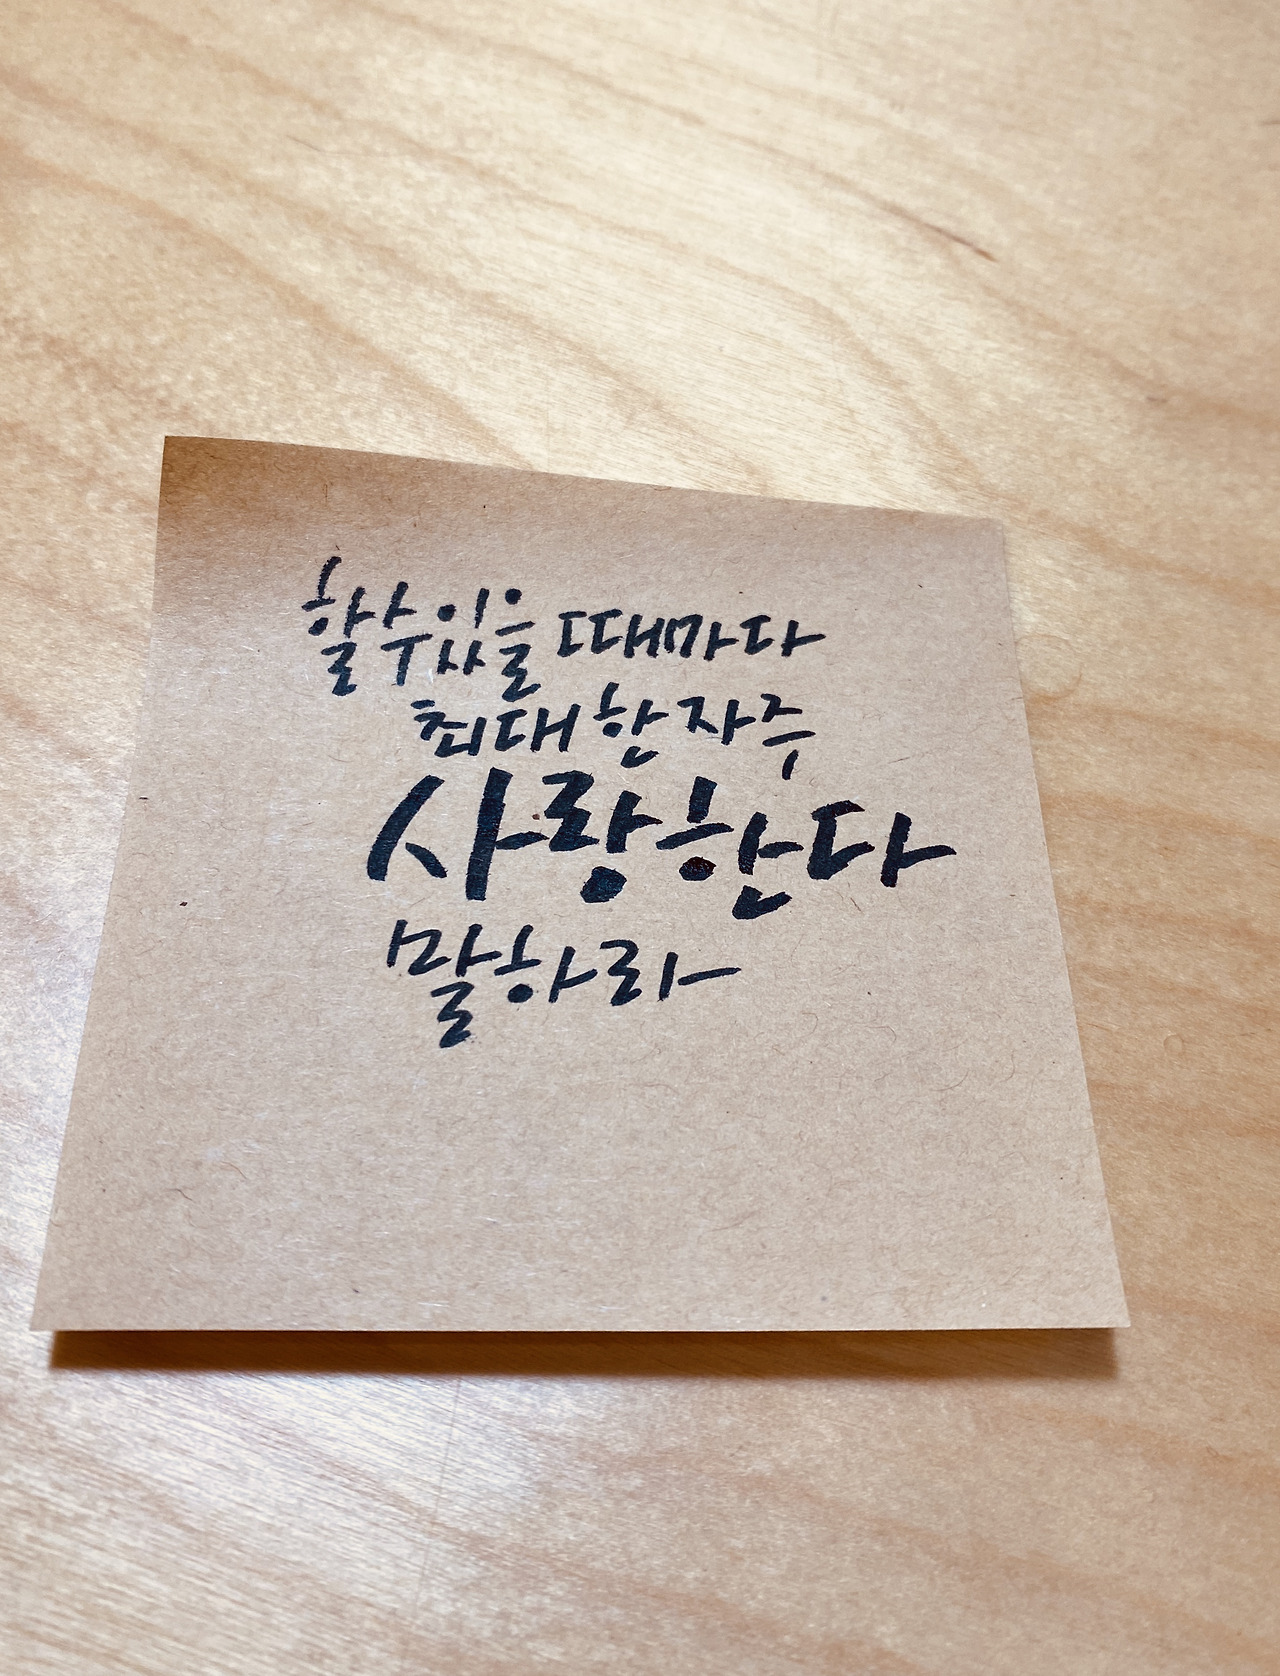 할 수 있을 때마다
최대한 자주
사랑한다
말하라